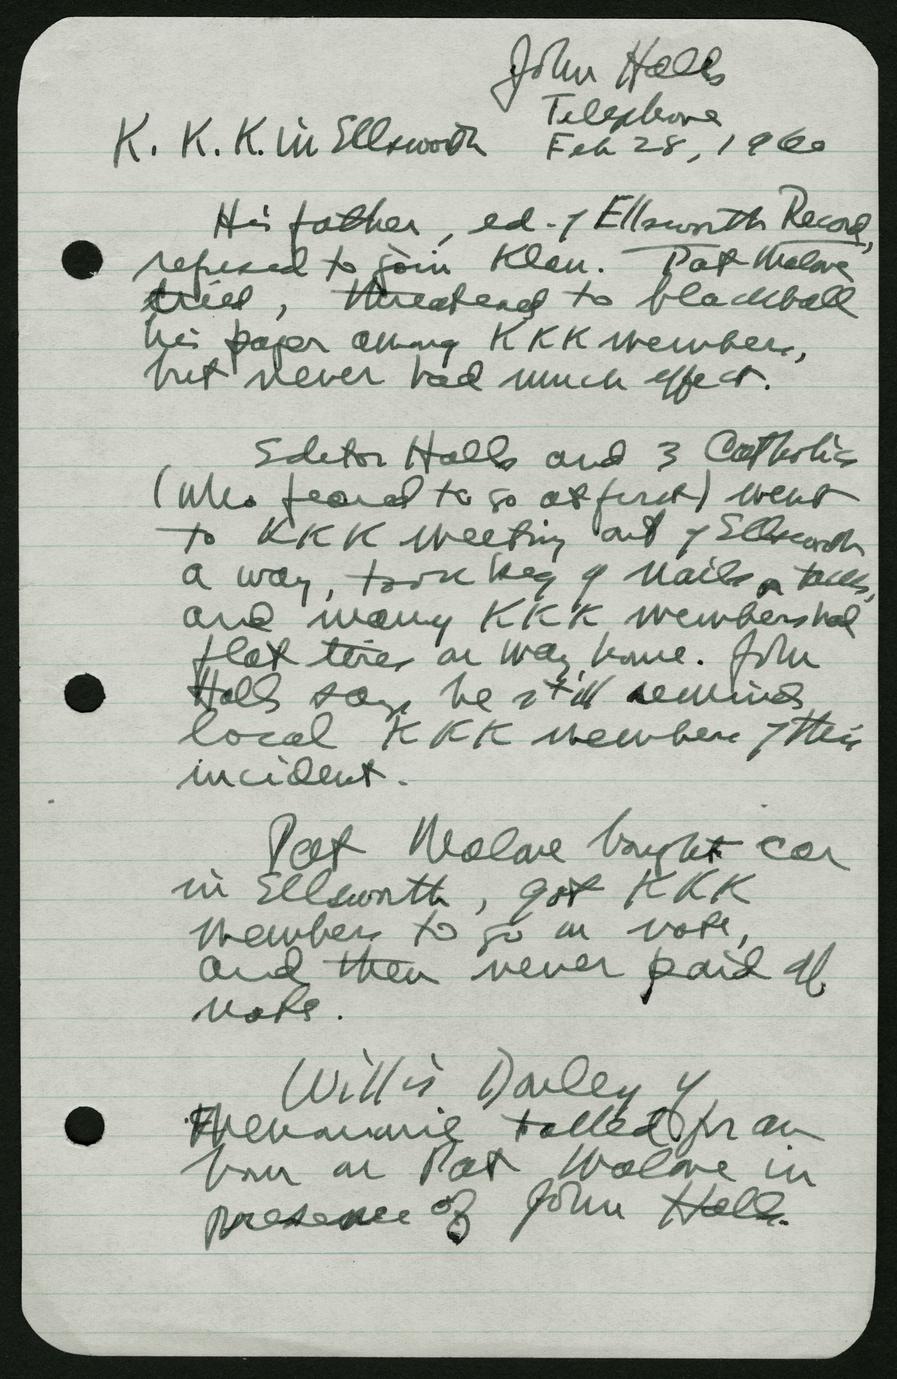 John Halls
Telephone
K. K. K. in Ellsworth Feb 28, 1960
His father, ed. of Ellsworth Record,
refused to join Klan. Pat Malone
tried, threatened to blackball
his paper among KKK members,
but never had much effect.
Editor Halls and 3 Catholics
(who feared to go at first) went
to KKK meeting out of Ellsworth
a way, took keg of nails or tacks,
and many KKK members had
flat tires on way home. John
Halls says he still reminds
local KKK members of this
incident.
Pat Malone bought car
in Ellsworth, got KKK
members to go on note,
and then never paid off
note.
Willis Danley of
Menomonie talked for an
hour on Pat Malone in
presence of John Halls.